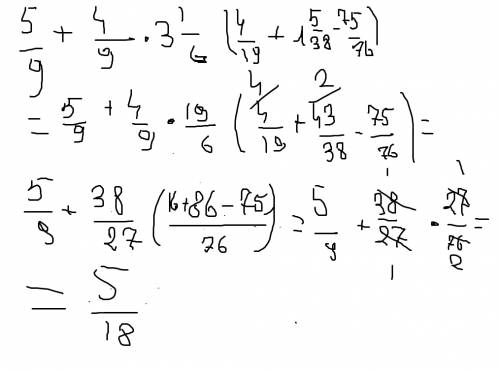 5/9 + 4/9 · 3 1/6 (4/19 + 1 5/38 - 75/76)
= 5/9 + 4/9 · 19/6 (4/19 + 43/38 - 75/76) =
5/9 + 38/27 (16+86-75/76) = 5/9 + 38/27 · 27/76 =
= 5/18